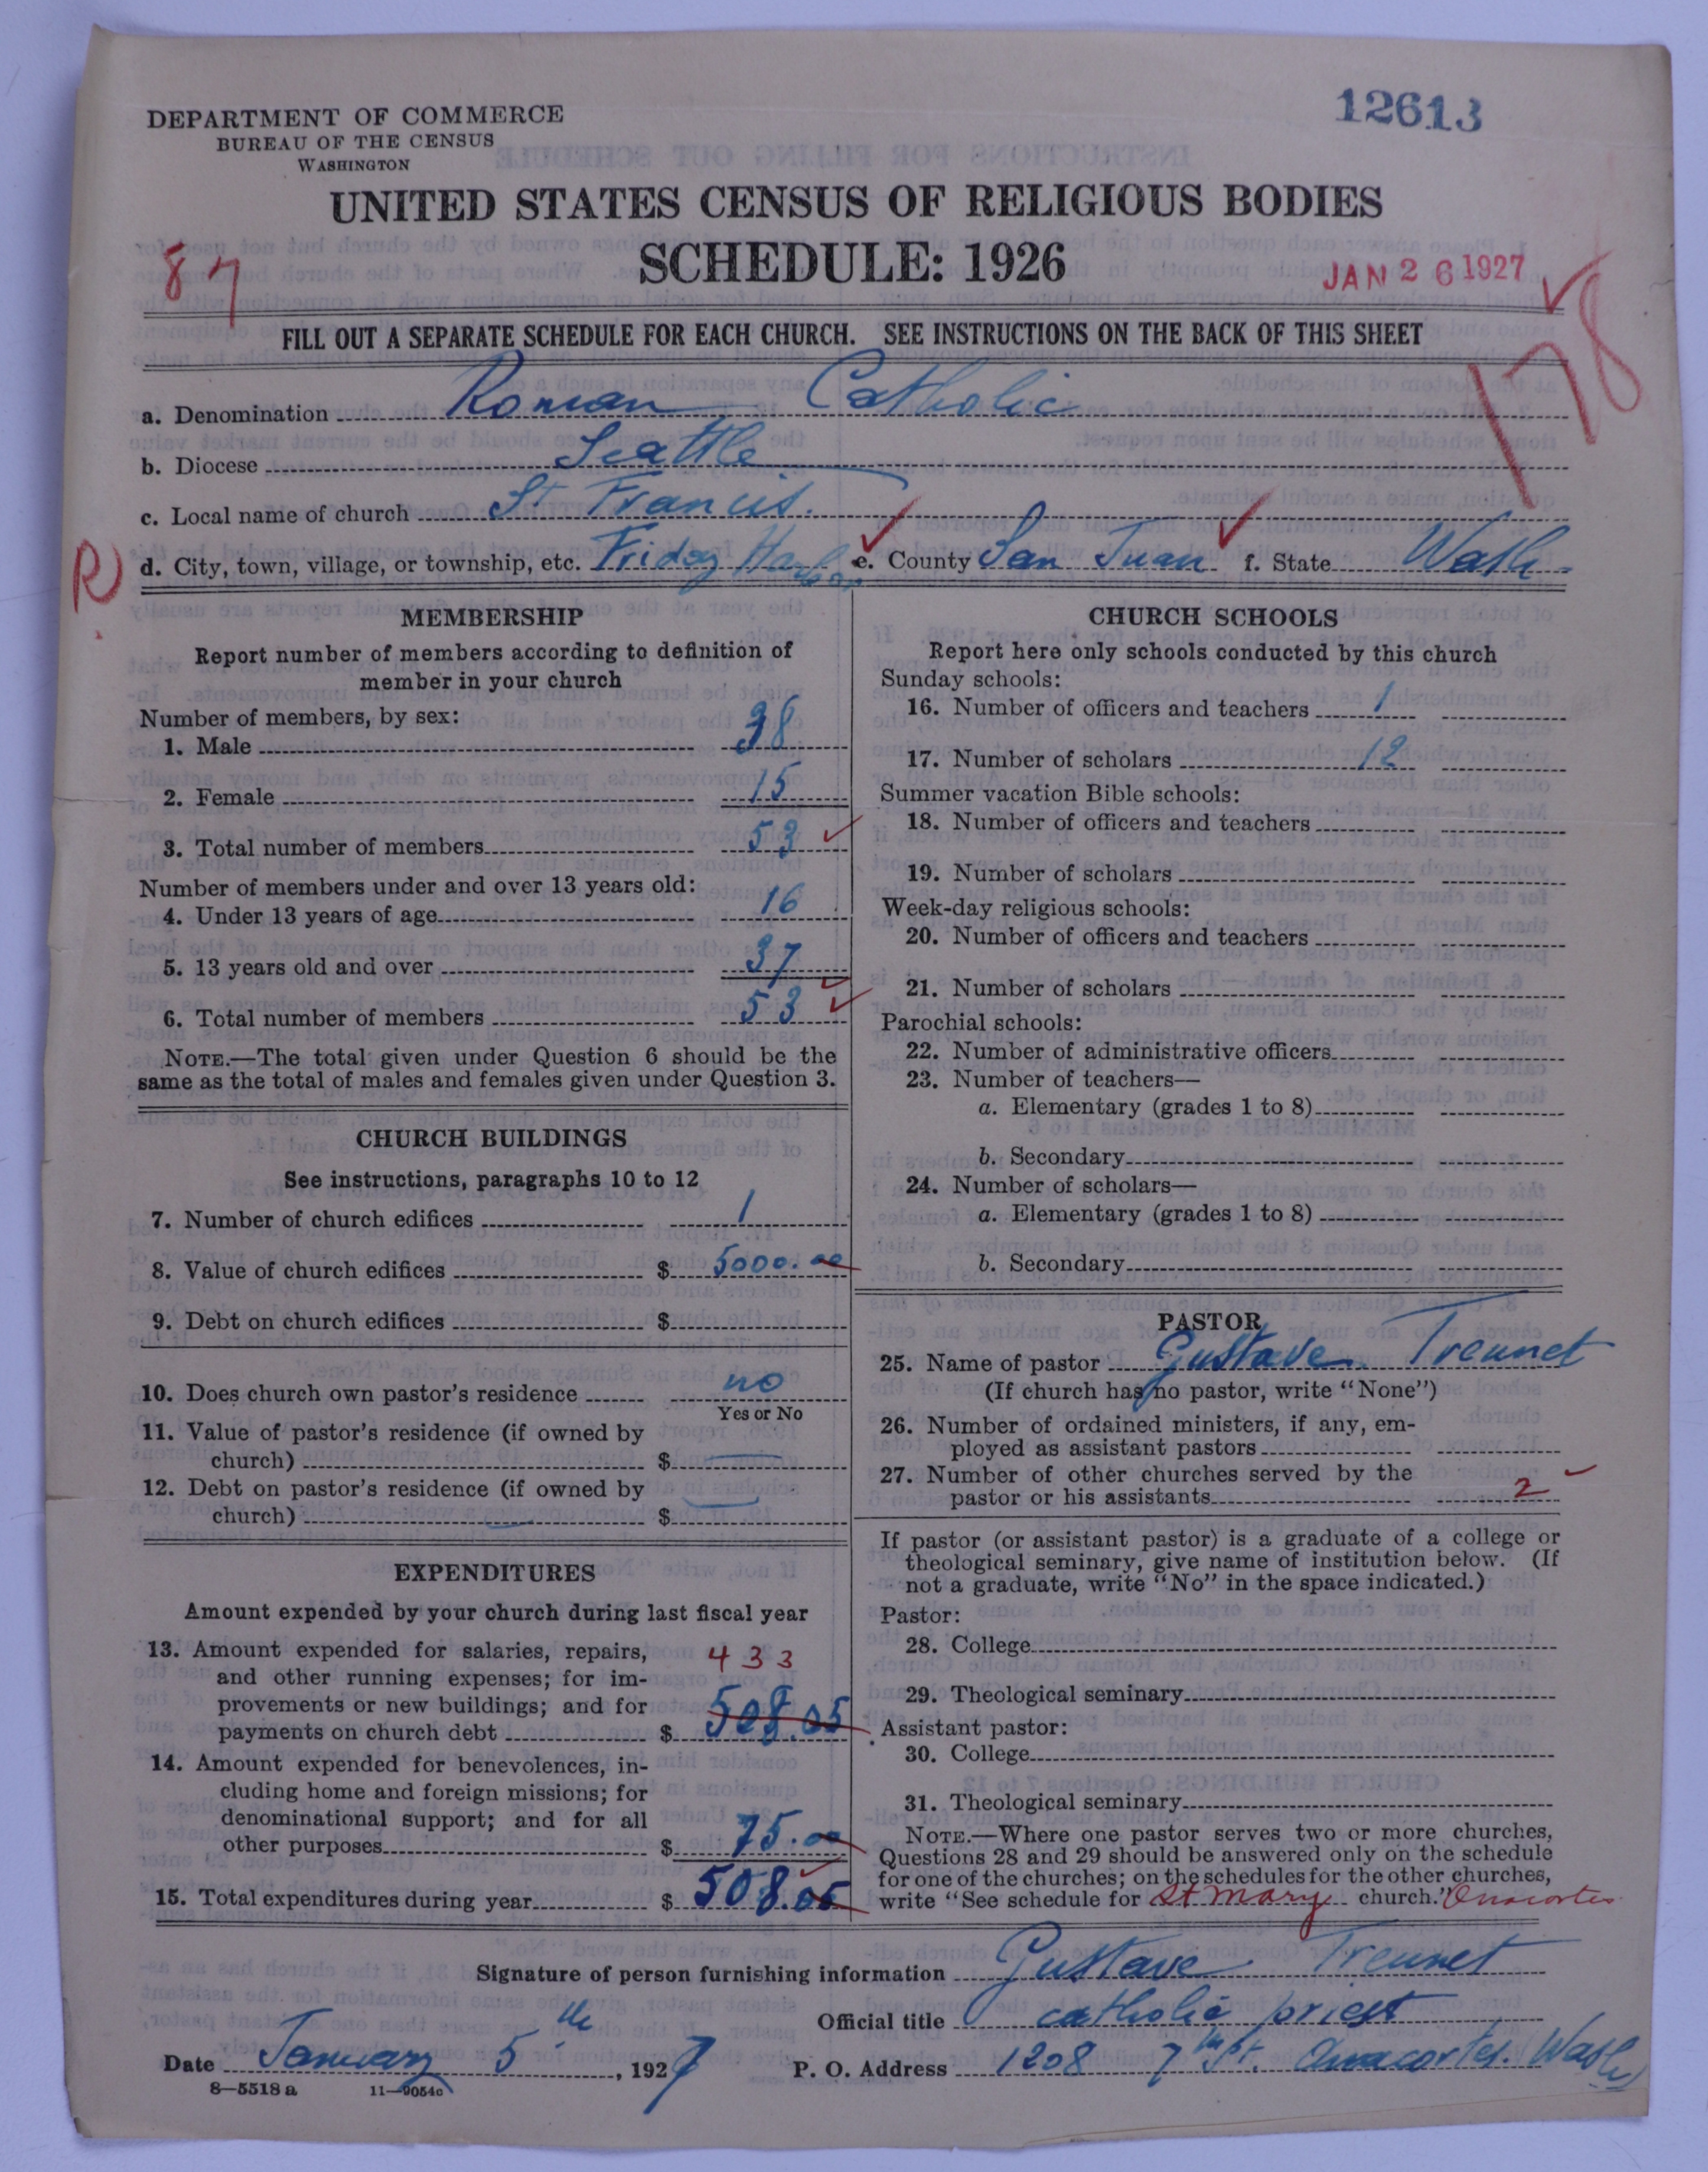 DEPARTMENT OF COMMERCE
BUREAU OF THE CENSUS
WASHINGTON
12613
UNITED STATES CENSUS OF RELIGIOUS BODIES
SCHEDULE: 1926
87
JAN 26 1927
178
FILL OUT A SEPARATE SCHEDULE FOR EACH CHURCH. SEE INSTRUCTIONS ON THE BACK OF THIS SHEET
a. Denomination Roman Catholic
b. Diocese Seattle
c. Local name of church St Francis.
R
d. City, town, village, or township, etc. Friday Harbor e. County San Juan f. State Wash.
MEMBERSHIP
Report number of members according to definition of
member in your church
Number of members, by sex:
1. Male 38
2. Female 15
3. Total number of members 53
Number of members under and over 13 years old:
4. Under 13 years of age 16
5. 13 years old and over 37
6. Total number of members 53
NOTE.—The total given under Question 6 should be the
same as the total of males and females given under Question 3.
CHURCH BUILDINGS
See instructions, paragraphs 10 to 12
7. Number of church edifices 1
8. Value of church edifices $ 5000.00
9. Debt on church edifices $
10. Does church own pastor's residence no
Yes or No
11. Value of pastor's residence (if owned by
church) $
12. Debt on pastor's residence (if owned by
church) $
EXPENDITURES
Amount expended by your church during last fiscal year
13. Amount expended for salaries, repairs, 433
and other running expenses; for im-
provements or new buildings; and for
payments on church debt $ 508.05
14. Amount expended for benevolences, in-
cluding home and foreign missions; for
denominational support; and for all
other purposes $ 75.00
15. Total expenditures during year $ 508.05
CHURCH SCHOOLS
Report here only schools conducted by this church
Sunday schools:
16. Number of officers and teachers 1
17. Number of scholars 12
Summer vacation Bible schools:
18. Number of officers and teachers
19. Number of scholars
Week-day religious schools:
20. Number of officers and teachers
21. Number of scholars
Parochial schools:
22. Number of administrative officers
23. Number of teachers—
a. Elementary (grades 1 to 8)
b. Secondary
24. Number of scholars—
a. Elementary (grades 1 to 8)
b. Secondary
PASTOR
25. Name of pastor Gustave Treunet
(If church has no pastor, write "None")
26. Number of ordained ministers, if any, em-
ployed as assistant pastors
27. Number of other churches served by the
pastor or his assistants 2
If pastor (or assistant pastor) is a graduate of a college or
theological seminary, give name of institution below. (If
not a graduate, write "No" in the space indicated.)
Pastor:
28. College
29. Theological seminary
Assistant pastor:
30. College
31. Theological seminary
NOTE.—Where one pastor serves two or more churches,
Questions 28 and 29 should be answered only on the schedule
for one of the churches; on the schedules for the other churches,
write "See schedule for St Mary church." Anacortes
Signature of person furnishing information Gustave Treunet
Official title catholic priest
Date January 5th, 1927 P. O. Address 1208 7th St. Anacortes. Wash
8—5518 a 11—9054c